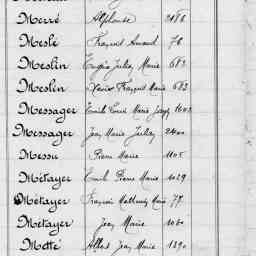 Merré Alphonse 2086
Meslé François Armand 76
Meslin Eugène Julien Marie 683
Meslin Xavier François Marie 683
Messager Emile Louis Marie Joseph
Messager Jean Marie Julien 2400
Messu Pierre Marie 1105
Métayer Emile Pierre Marie 1029
Métayer François Mathurin Marie 77
Métayer Jean Marie 1060
Metté Albert Jean Marie 1290